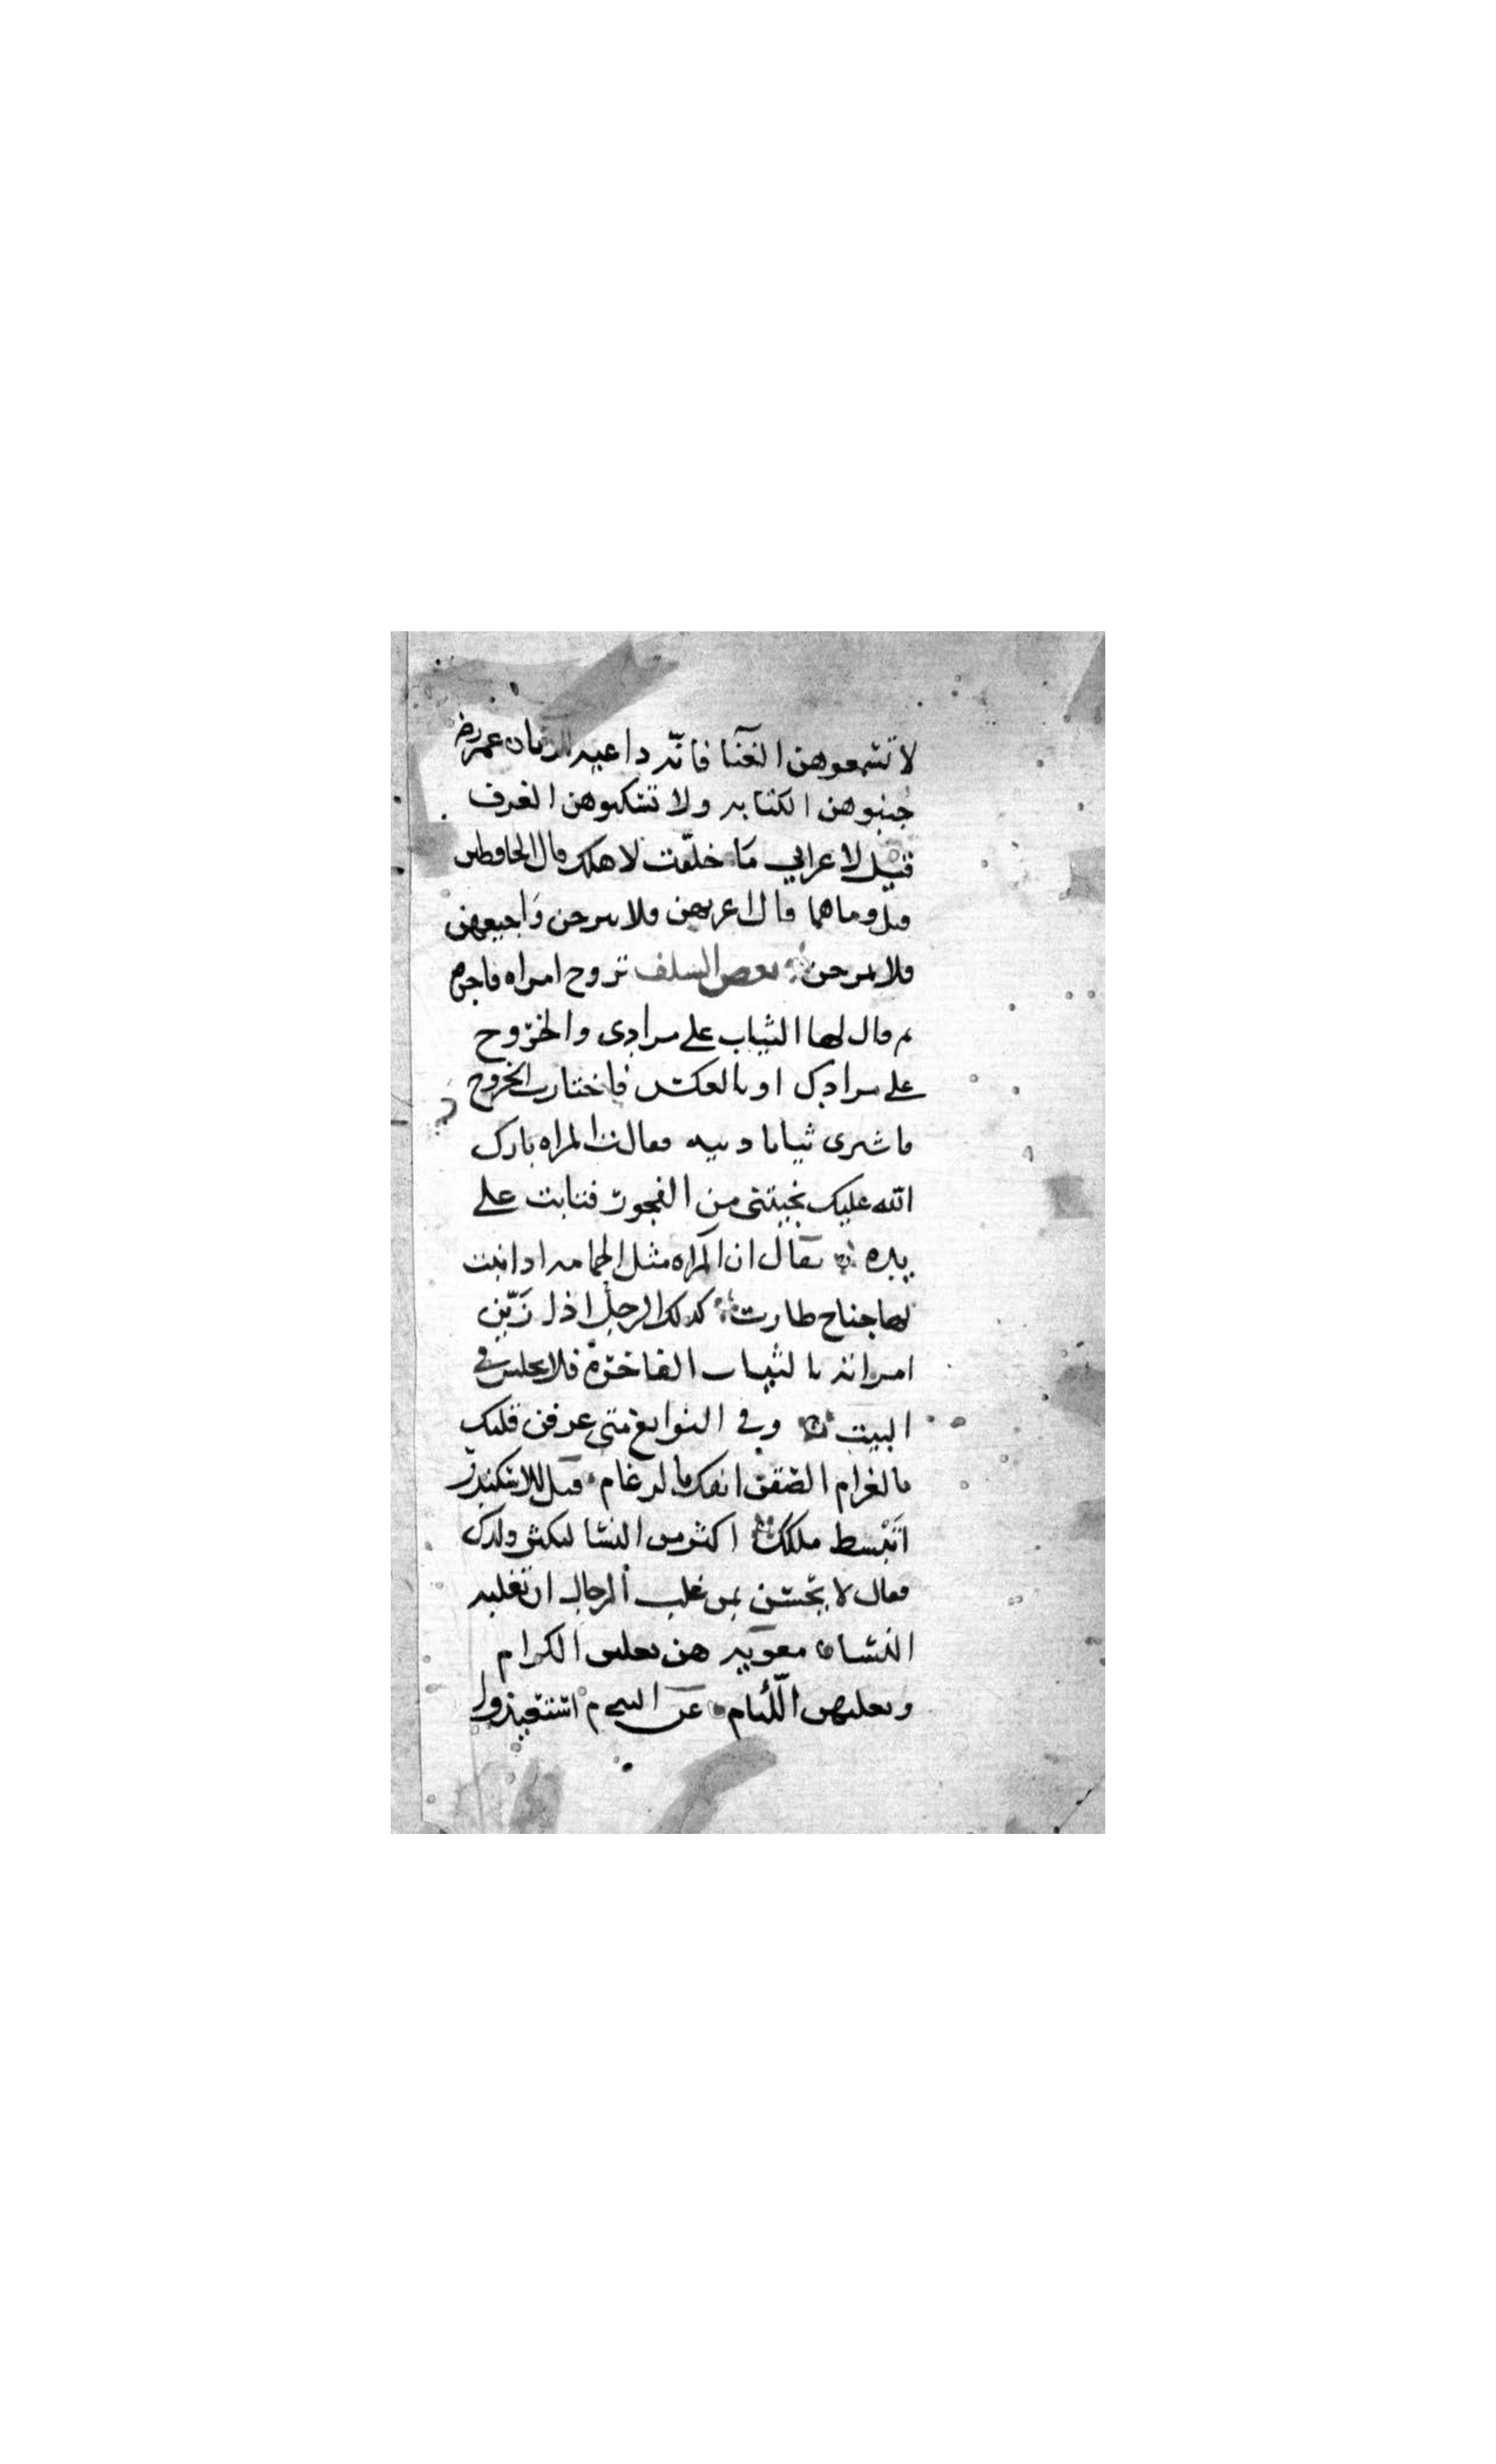 لا تسمعوهن الغنا فانه داعيه الزنا ن عمر رضـ
جنبوهن الكتابه ولا تسكنوهن الغرف
قيل لاعرابي ما خلفت لاهلك قال الحافظين
قيل وما هما قال اعريهن فلا يبرحن واجيعهن
فلا يمرحن بعض السلف تزوج امراه فاجره
ثم قال لها الثياب على مرادى والخروج
على مرادك او بالعكس فاختارت الخروج
فاشرى ثيابا دنيه فقالت المراه بارك
الله عليك نجيتنى من الفجور فتابت على
يده يقال ان المراه مثل الحمامه اذا نبت
لها جناح طارت كذلك الرجل اذا زَيّن
امراته بالثياب الفاخرة فلا يجلس في
البيت وفي النوابغ متى عرفن قلبك
بالغرام الصقن انفك بالرغام قيل للاسكندر
اتبسط ملكك اكثر من النسا ليكثر ولدك
فقال لا يحسن بمن غلب الرجال ان تغلبه
النسا ن معويه هن يغلبن الكرام
ويغلبهن اللئام عن النبي م استعيذوا